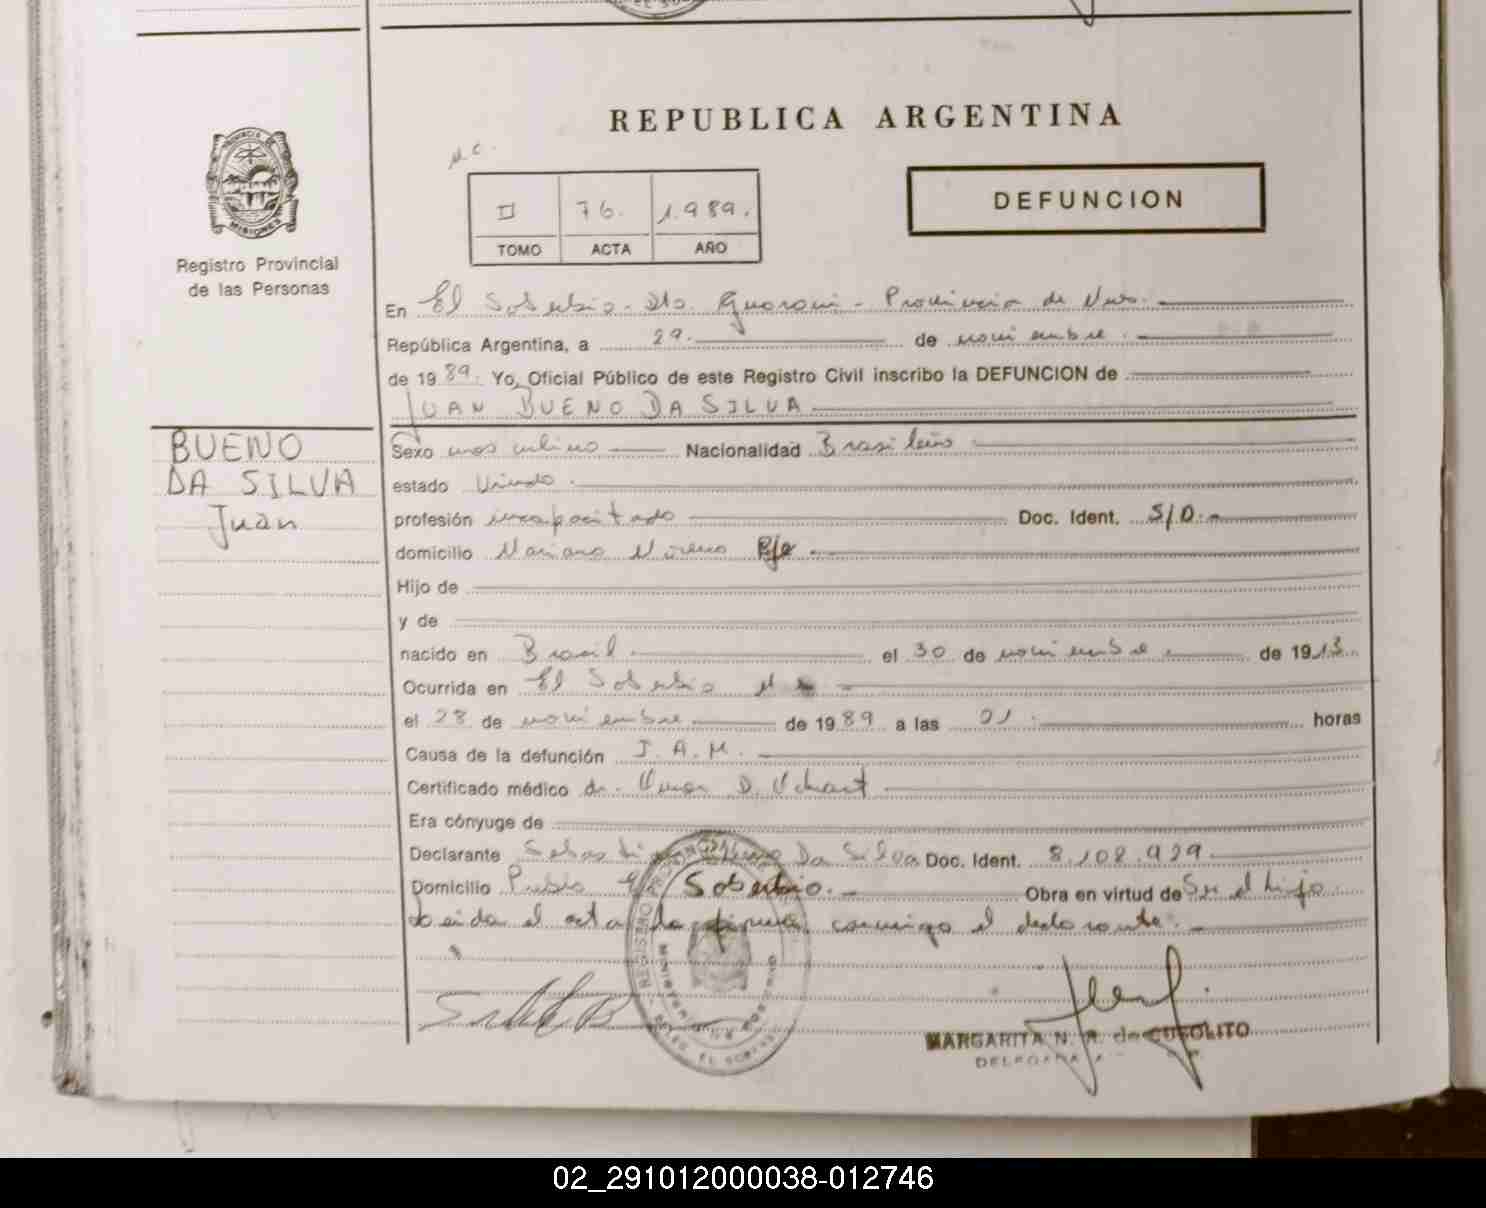 REPUBLICA ARGENTINA
PROVINCIA DE
MISIONES
Registro Provincial
de las Personas
II 76. 1.989.
TOMO ACTA AÑO
DEFUNCION
En El Soberbio - Dto. Guarani - Provincia de Mnes.
República Argentina, a 29. de noviembre.
de 1989. Yo, Oficial Público de este Registro Civil inscribo la DEFUNCION de
JUAN BUENO DA SILVA
BUENO
DA SILVA
Juan
Sexo masculino Nacionalidad Brasileño
estado Viudo.
profesión incapacitado Doc. Ident. S/D.-
domicilio Mariano Moreno
Hijo de
y de
nacido en Brasil el 30 de noviembre de 1913
Ocurrida en El Soberbio
el 28 de noviembre de 1989 a las 01 horas
Causa de la defunción I.A.M.
Certificado médico dr. D.
Era cónyuge de
Declarante Bueno Da Silva Doc. Ident. 8.108.929
Domicilio Pueblo El Soberbio.- Obra en virtud de Ser el hijo
Leida el acta la firma conmigo el declarante.-
MARGARITA N. R. de CUSOLITO
DELEGADA
02_291012000038-012746